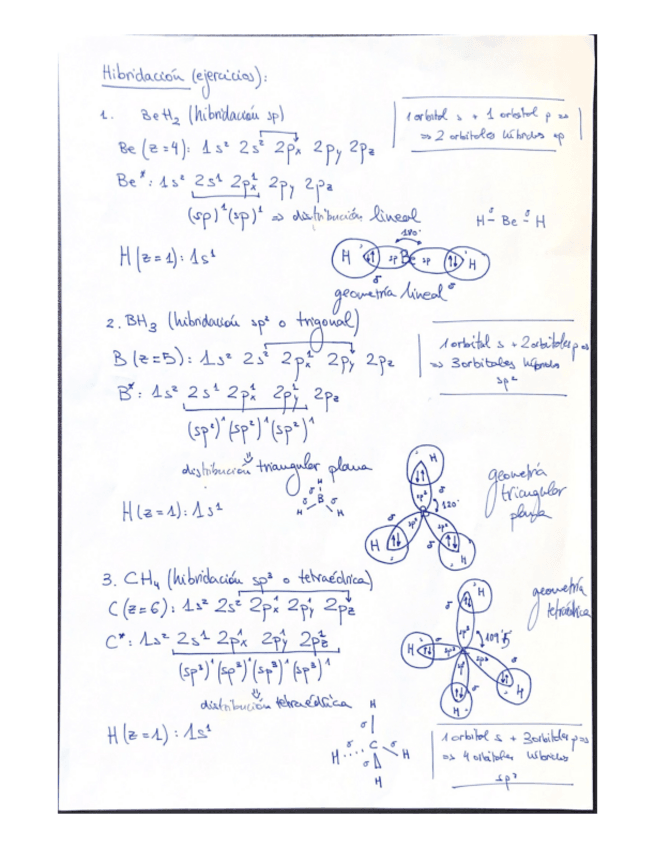 Hibridación (ejercicios):
1. BeH₂ (hibridación sp)
1 orbital s + 1 orbital p ⇒
⇒ 2 orbitales híbridos sp
Be (z=4): 1s² 2s² 2px 2py 2pz
Be*: 1s² 2s¹ 2px¹ 2py 2pz
(sp)¹ (sp)¹ ⇒ distribución lineal
H – Be – H
σ σ
H (z=1): 1s¹
180°
H ↑↓ sp Be sp ↑↓ H
σ σ
geometría lineal
2. BH₃ (hibridación sp² o trigonal)
1 orbital s + 2 orbitales p ⇒
⇒ 3 orbitales híbridos
sp²
B (z=5): 1s² 2s² 2px¹ 2py 2pz
B*: 1s² 2s¹ 2px¹ 2py¹ 2pz
(sp²)¹ (sp²)¹ (sp²)¹
⇓
distribución triangular plana
H
σ
B
σ σ
H H
H (z=1): 1s¹
H
↑↓
σ
sp²
120°
sp² sp²
σ σ
H ↑↓ ↑↓ H
geometría
triangular
plana
3. CH₄ (hibridación sp³ o tetraédrica)
C (z=6): 1s² 2s² 2px¹ 2py¹ 2pz
C*: 1s² 2s¹ 2px¹ 2py¹ 2pz¹
(sp³)¹ (sp³)¹ (sp³)¹ (sp³)¹
⇓
distribución tetraédrica
H (z=1): 1s¹
H
σ
H σ C σ H
σ
H
H
↑↓
σ
sp³
109'5
H ↑↓ σ sp³ sp³
sp³ σ
↑↓ ↑↓ H
H
geometría
tetraédrica
1 orbital s + 3 orbitales p ⇒
⇒ 4 orbitales híbridos
sp³